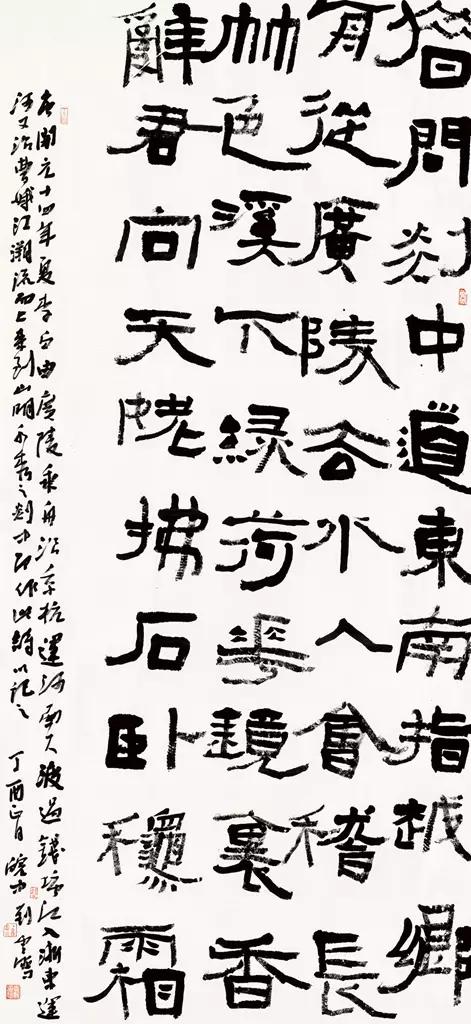 借問剡中道東南指越鄉
舟從廣陵去水入會稽長
竹色溪下綠荷花鏡裏香
辭君向天姥拂石臥龝霜
唐開元十四年夏李白由廣陵乘舟沿京杭運河南下渡過錢塘江入浙東運
河又沿曹娥江溯流而上來到山明水秀之剡中即作此詩以記之 丁酉正月皖中劉雲